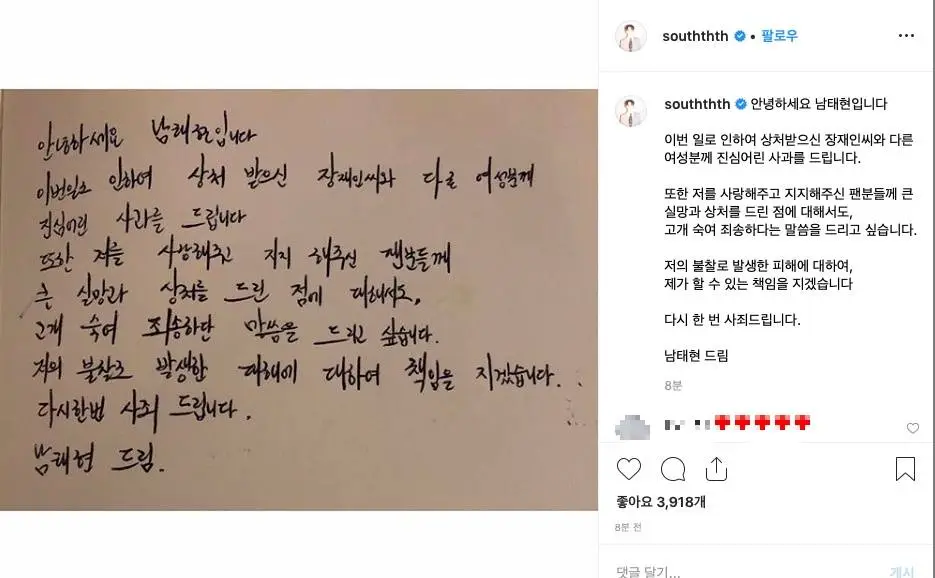 안녕하세요 남태현입니다
이번일로 인하여 상처 받으신 장재인씨와 다른 여성분께
진심어린 사과를 드립니다
또한 저를 사랑해주고 지지 해주신 팬분들께
큰 실망과 상처를 드린 점에 대해서도,
고개 숙여 죄송하단 말씀을 드리고 싶습니다.
저의 불찰로 발생한 피해에 대하여 책임을 지겠습니다..
다시한번 사죄 드립니다.
남태현 드림.
southhth • 팔로우
southhth 안녕하세요 남태현입니다
이번 일로 인하여 상처받으신 장재인씨와 다른
여성분께 진심어린 사과를 드립니다.
또한 저를 사랑해주고 지지해주신 팬분들께 큰
실망과 상처를 드린 점에 대해서도,
고개 숙여 죄송하다는 말씀을 드리고 싶습니다.
저의 불찰로 발생한 피해에 대하여,
제가 할 수 있는 책임을 지겠습니다
다시 한 번 사죄드립니다.
남태현 드림
8분
좋아요 3,918개
8분 전
댓글 달기...
게시